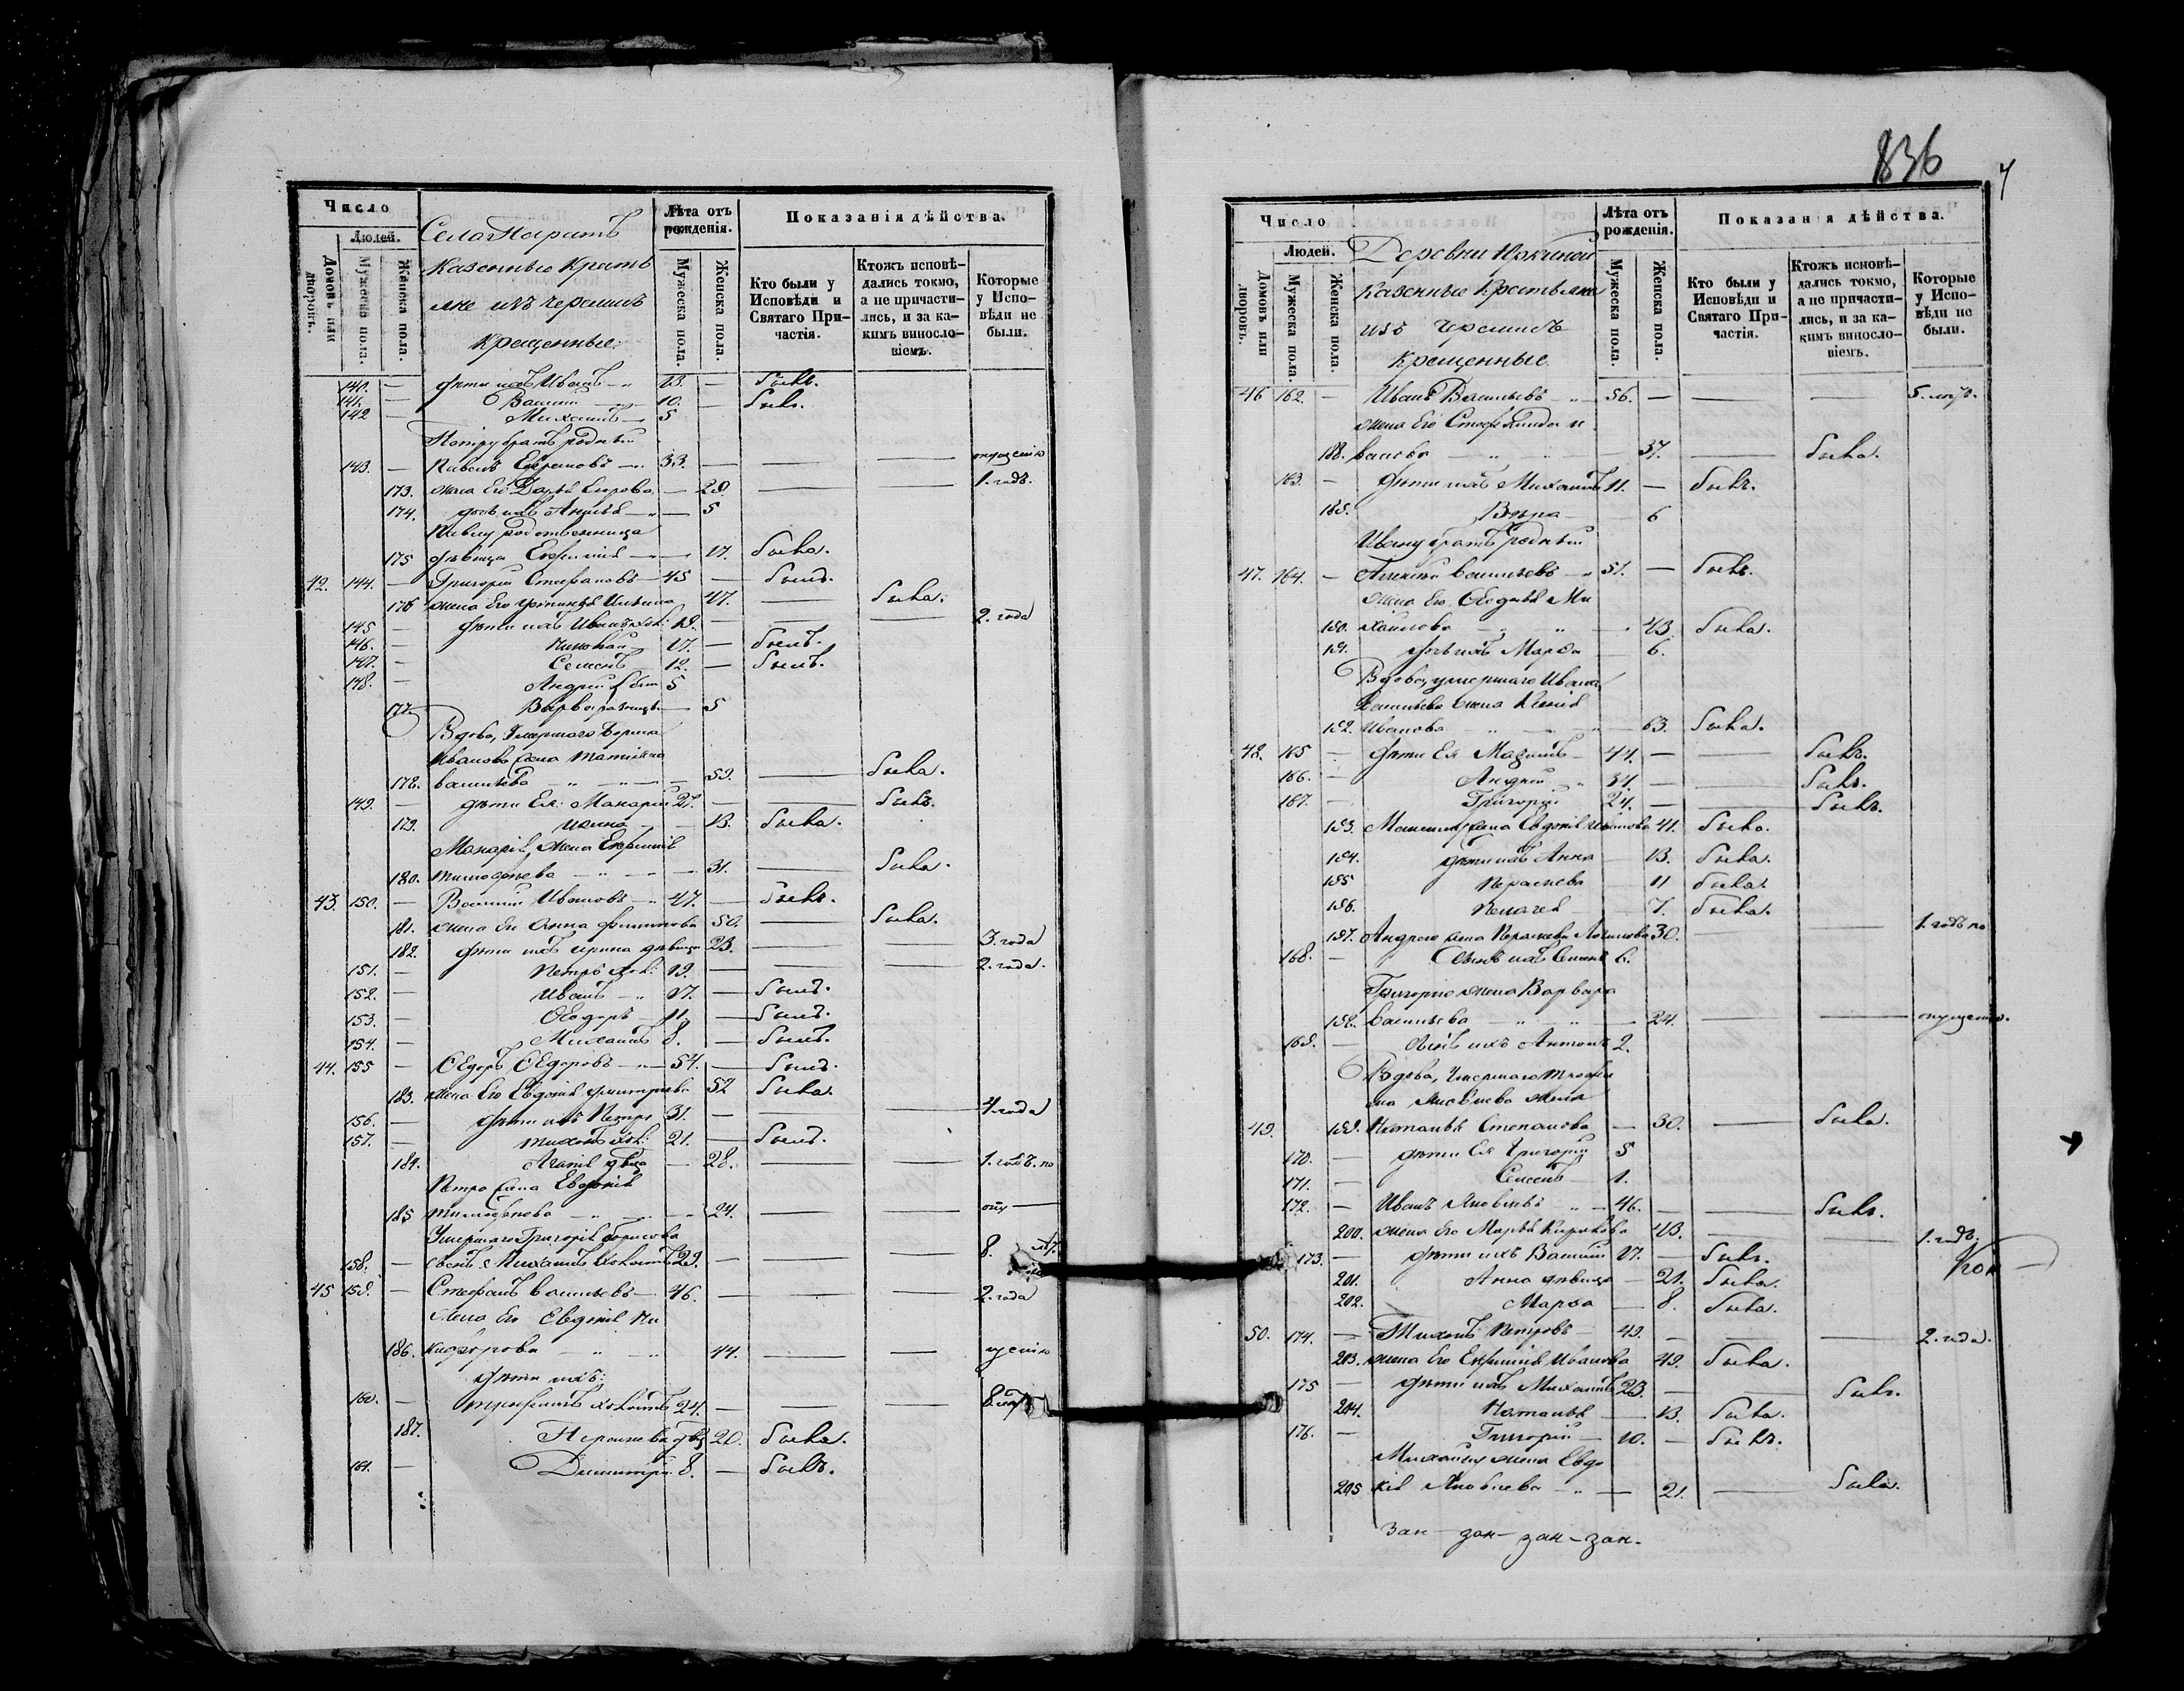 Число
Людей.
Домовъ или дворовъ.
Мужеска пола.
Женска пола.
Лѣта отъ рожденія.
Мужеска пола.
Женска пола.
Показанія дѣйства.
Кто были у Исповѣди и Святаго Причастія.
Ктожъ исповѣдались токмо, а не причастились, и за какимъ винословіемъ.
Которые у Исповѣди не были.
Села
Казенные Кресть
яне изъ черемисъ
крещенные:
140. — дѣти ихъ Иванъ — 13. — былъ.
141. — Василій — 10. — былъ.
142 — Михаилъ — 5
Петру братъ родный
143. — Павелъ — 33. — — — опущенію
173. жена Его Дарья — 28. — — 1. годъ.
174. дочь ихъ — 5
Павлу родственница
175 дѣвица Евфимія — 17. была.
42. 144. — Григорій Стефановъ — 45 — былъ.
176 жена Его — 47. — была.
145 — дѣти ихъ Иванъ хол: 19. — — — 2. года
146. — Николай — 17. — былъ.
147. — Семенъ 12. — былъ.
148. — Андрей 5
177. Варвара — 5
Вдова, Умершаго Бориса
Иванова жена Татіяна
178. Васильева — 59. — была.
149. — дѣти Ея: Макарій 27. — — былъ.
179. — 13. была.
Макарія жена Евфимія
180. Тимофеева — 31. — была
43. 150. — Василій Ивановъ — 47. — былъ.
181. жена Его Анна Филипова 50. — была.
182. дѣти ихъ Ирина дѣвица 23. — — 3. года
151. — Петръ хол: 19. — — — 2. года.
152. — Иванъ — 17. — былъ.
153. — Ѳеодоръ — 11. — былъ.
154. — Михаилъ 8. — былъ.
44. 155 — Ѳедоръ Ѳедоровъ — 54. — былъ.
183. жена Его Евдокія Димитріева 52 была.
156. — дѣти ихъ Петръ 31. — — — 4. года
157. — Тихонъ хол: 21. — былъ.
184. Агапія — 28. — — 1. годъ. по
Петра жена Евдокія
185 Тимофеева — 24. — — опу —
Умершаго Григорія Борисова
158. — сынъ Михаилъ холостъ 29. — — — 8. лѣт
45 159. — Стефанъ Васильевъ — 46. — — — 2. года
жена Его Евдокія Ни
186. кифорова — 44. — — щенію
дѣти ихъ:
160. — Трофимъ холостъ 24. — — — 8. лѣт
187. Параскева 20. была.
161. — Димитрій 8. — былъ.
836
Число
Людей.
Домовъ или дворовъ.
Мужеска пола.
Женска пола.
Лѣта отъ рожденія.
Мужеска пола.
Женска пола.
Показанія дѣйства.
Кто были у Исповѣди и Святаго Причастія.
Ктожъ исповѣдались токмо, а не причастились, и за какимъ винословіемъ.
Которые у Исповѣди не были.
Деревни
Казенные Крестьяне
изъ черемисъ
крещенные
46 162. — Иванъ Васильевъ — 56. — — — 5. лѣт.
жена Его Стефанида И
188. ванова — 37. — была.
163. — дѣти ихъ Михаилъ 11. — былъ.
189. Вѣра — 6
Ивану братъ родный
47. 164. — Васильевъ — 51. — былъ.
жена Его Ѳеодосія Ми
190. хайлова — 43. была.
191. дочь ихъ Марѳа — 6.
Вдова, умершаго Ивана
Васильева жена Ксенія
192. Иванова — 63. была.
48. 165 — дѣти Ея — 44. — — былъ.
166. — Андрей — 31. — — былъ.
167. — Григорій 24. — — былъ.
193. жена Евдокія Иванова 41. была.
194. дѣти ихъ Анна — 13. была.
195 Параскева — 11 была.
196. Пелагея — 7. была.
197. Андрея жена Параскева 30. — — 1. годъ по
168. — сынъ ихъ Семенъ 6.
Григорія жена Варвара
198. Васильева — 24. — — опущенію.
169. — сынъ ихъ Антонъ 2.
Вдова, Умершаго Трофи
ма жена
49. 199. Наталья Степанова — 30. — была.
170. — дѣти Ея Григорій 5
171. — Семенъ — 1.
172. — Иванъ Яковлевъ — 46. — — былъ.
200. жена Его Марья 43. — — 1. годъ.
173. — дѣти ихъ Василій 17. — былъ.
201. Анна дѣвица — 21. была.
202. Марѳа — 8. была.
50. 174. — Тихонъ Петровъ — 49. — — — 2. года.
203. жена Его Евфимія Иванова 49. была.
175 — дѣти ихъ Михаилъ 23. — — былъ.
204. Наталья — 13. была.
176. — Григорій — 10. — былъ.
Михаила жена Евдо
205 кія Яковлева — 21. — была.
зан — зан — зан — зан.